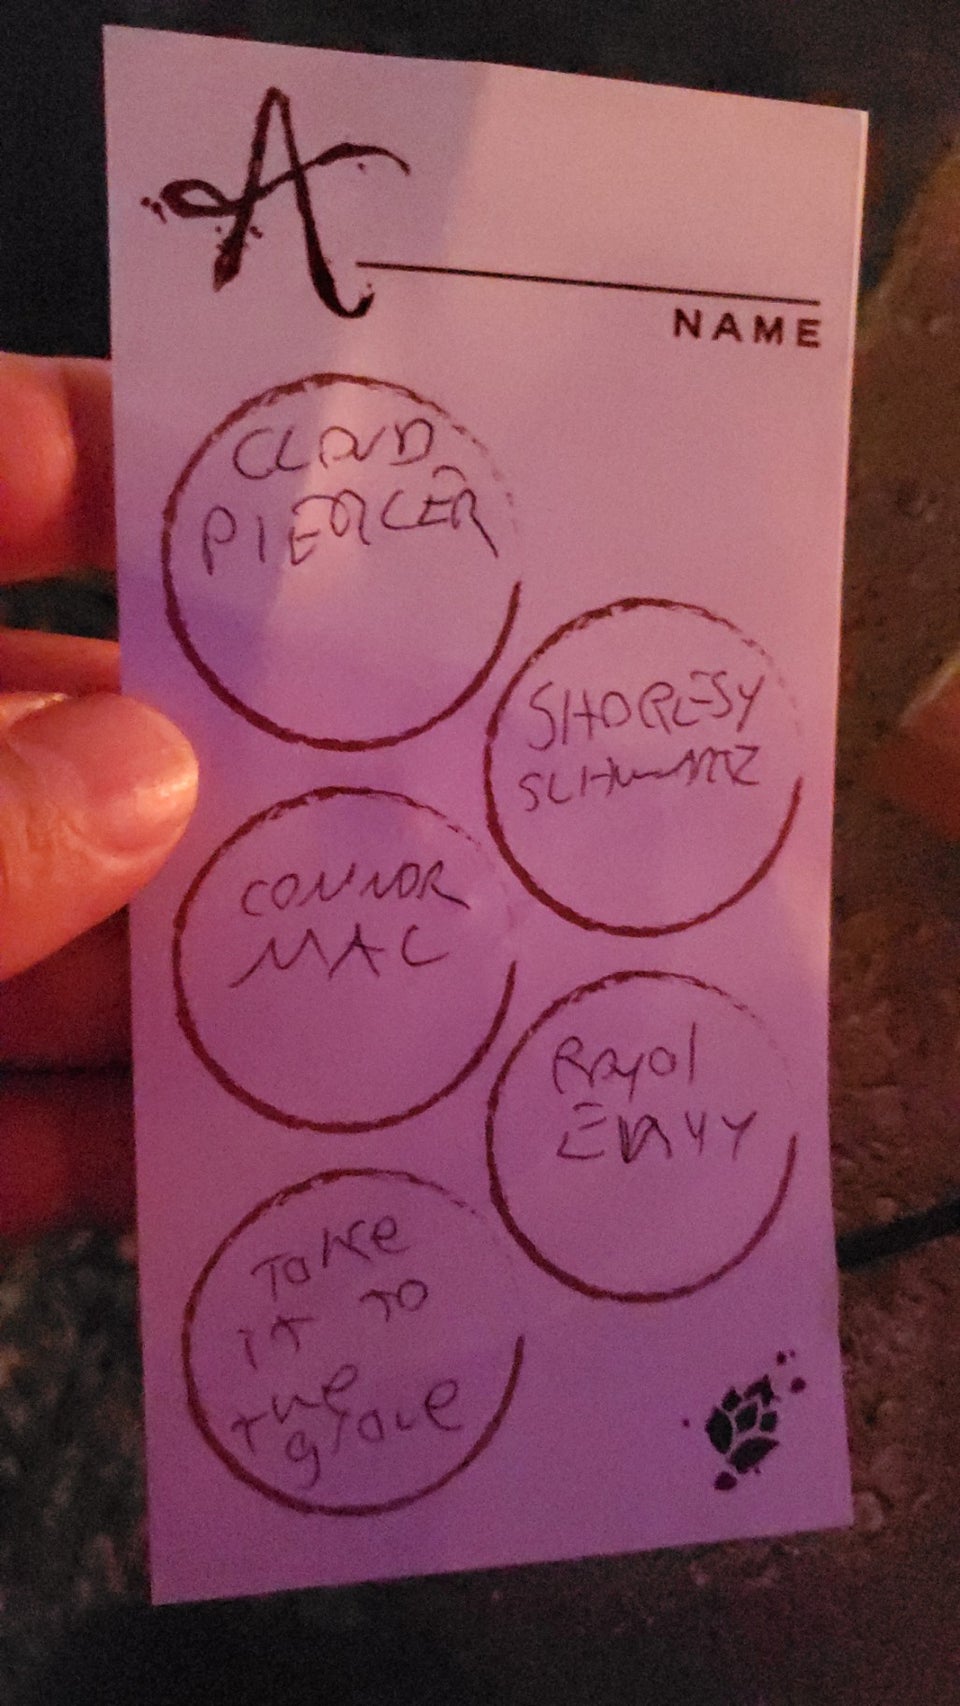 A
NAME
CLOUD
PIERCER
SHORESY
SCHWARTZ
CONNOR
MAC
Royol
ENVY
Take
IT TO
the
grave